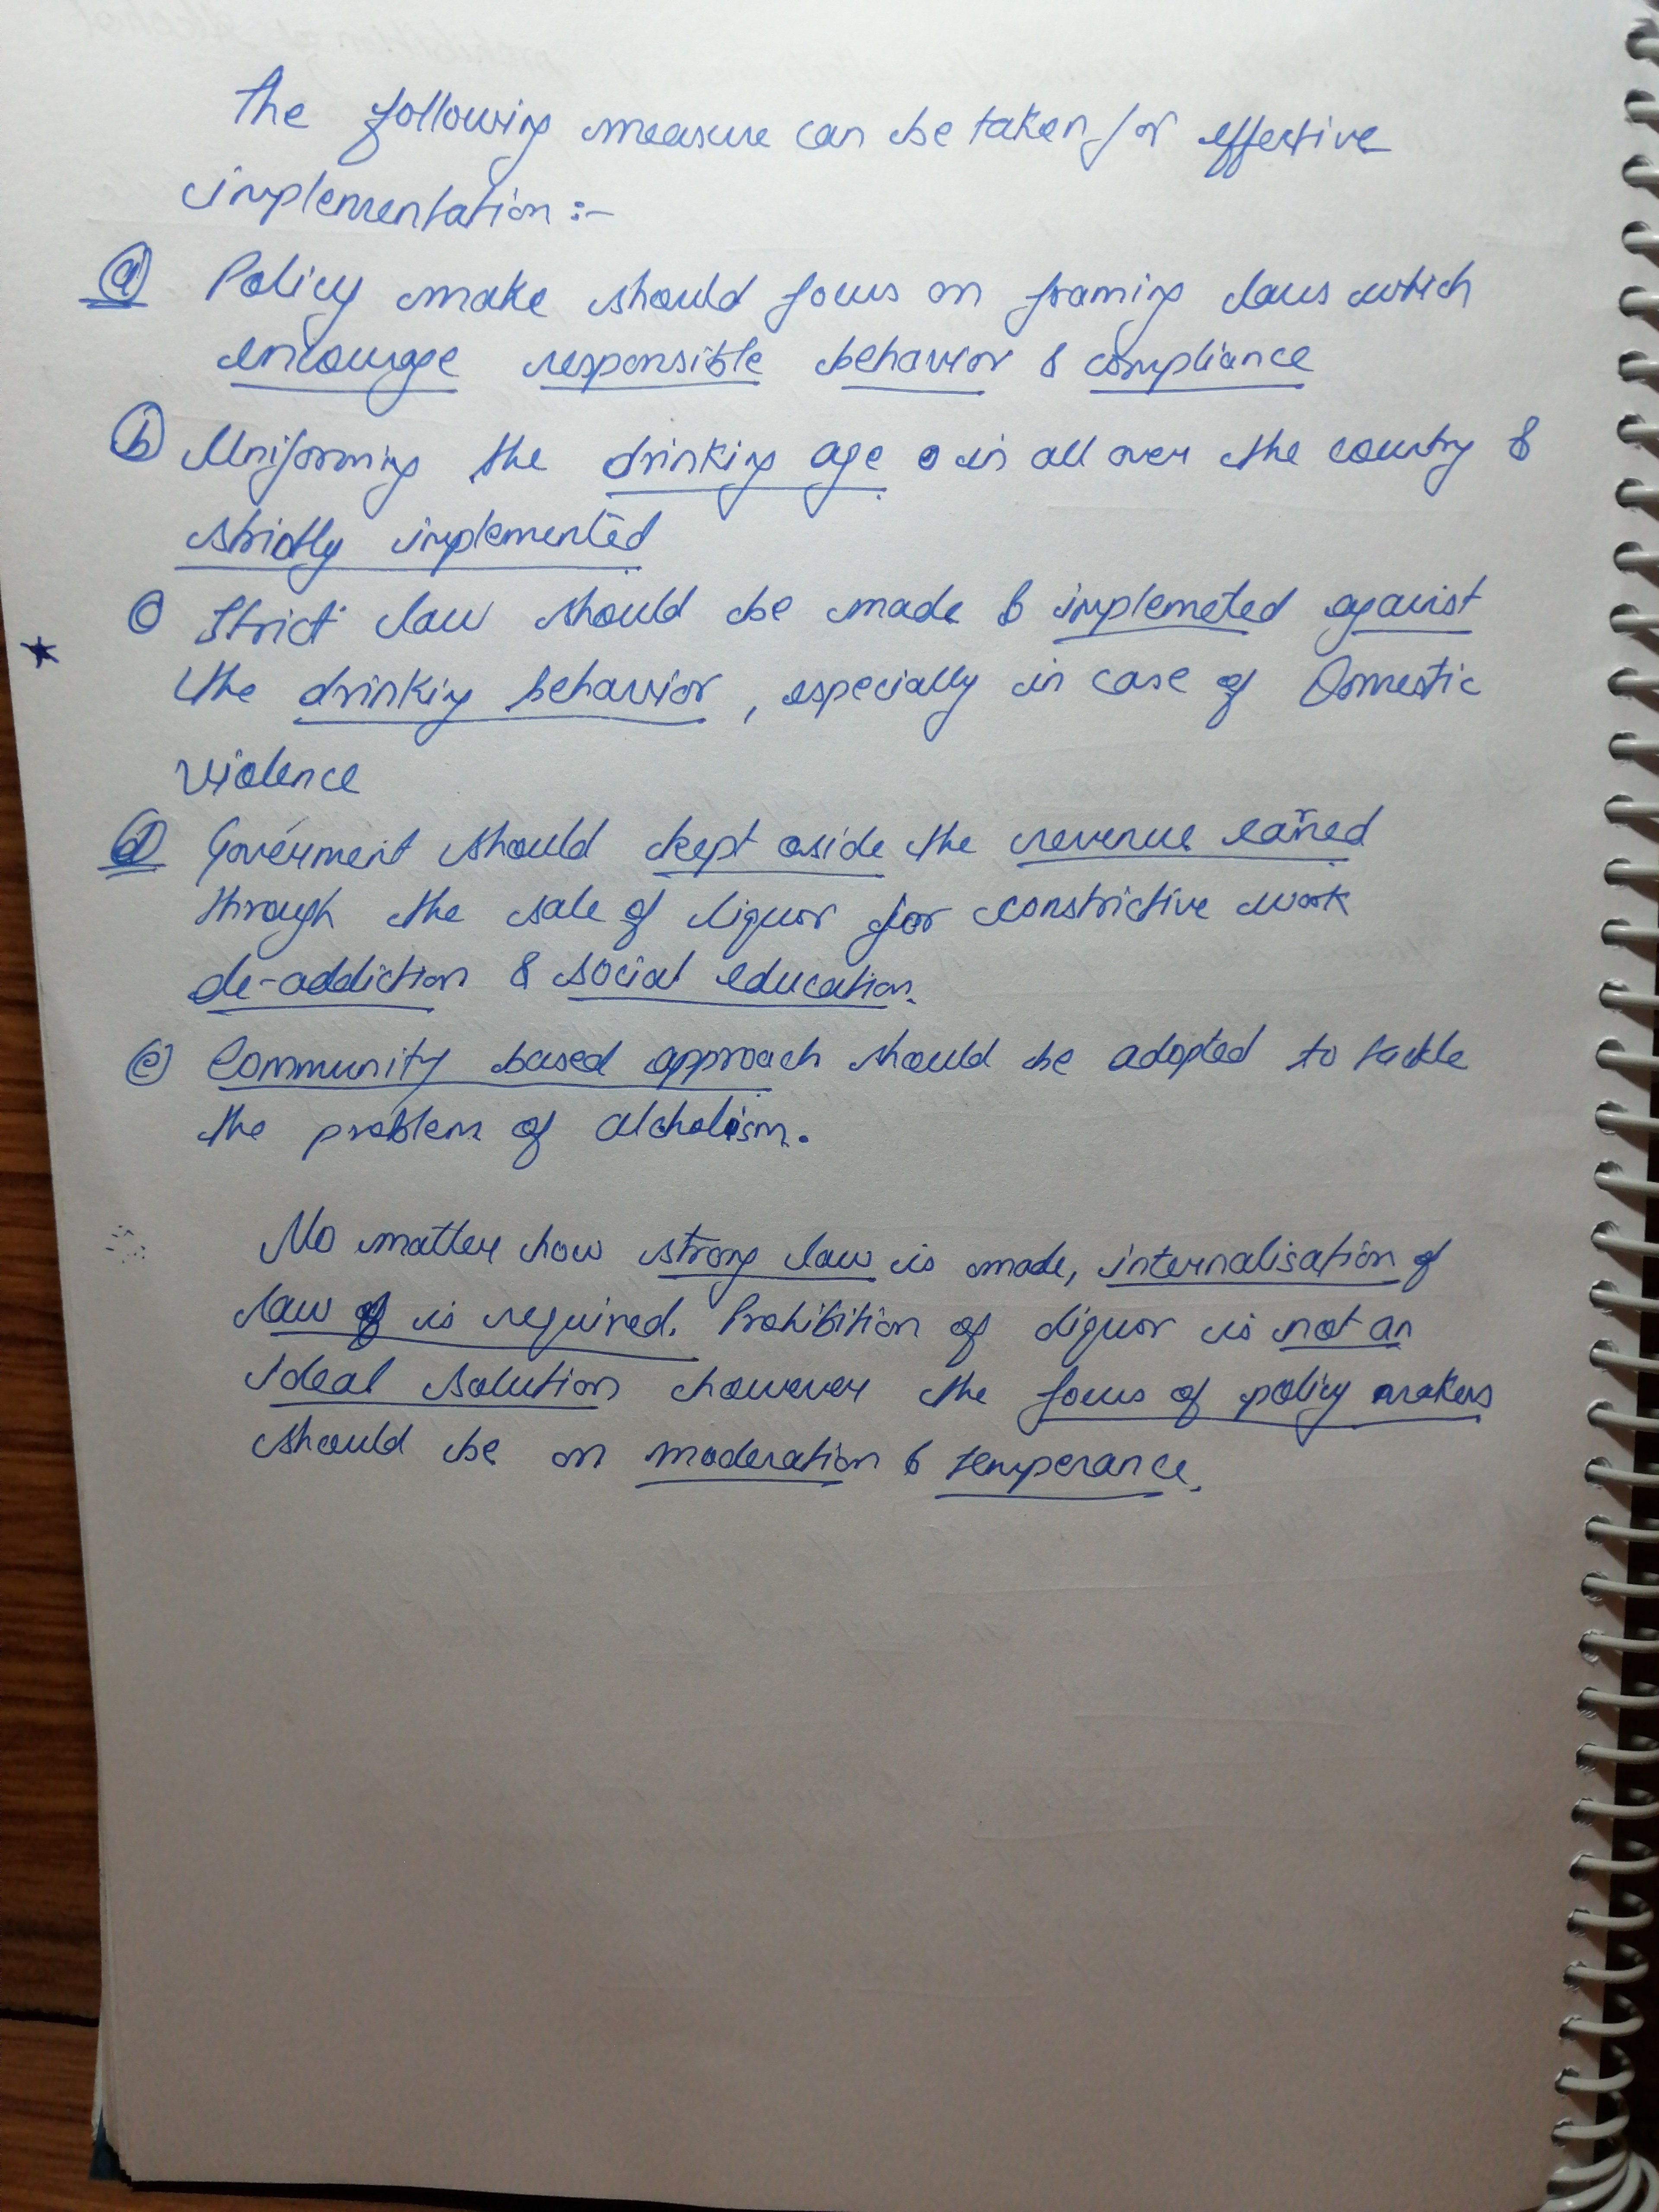 The following measure can be taken for effective
implementation :-
(a) Policy make should focus on framing laws which
encourage responsible behavior & compliance
(b) Uniforming the drinking age in all over the country &
strictly implemented
(c) Strict law should be made & implemeted against
the drinking behavior, especially in case of Domestic
violence
(d) Goverment should kept aside the revenue earned
through the sale of liquor for constrictive work
de-addiction & social education.
(e) Community based approach should be adopted to tackle
the problem of alcholism.
No matter how strong law is made, internalisation of
law is required. Prohibition of liquor is not an
ideal solution however the focus of policy makers
should be on moderation & temperance.